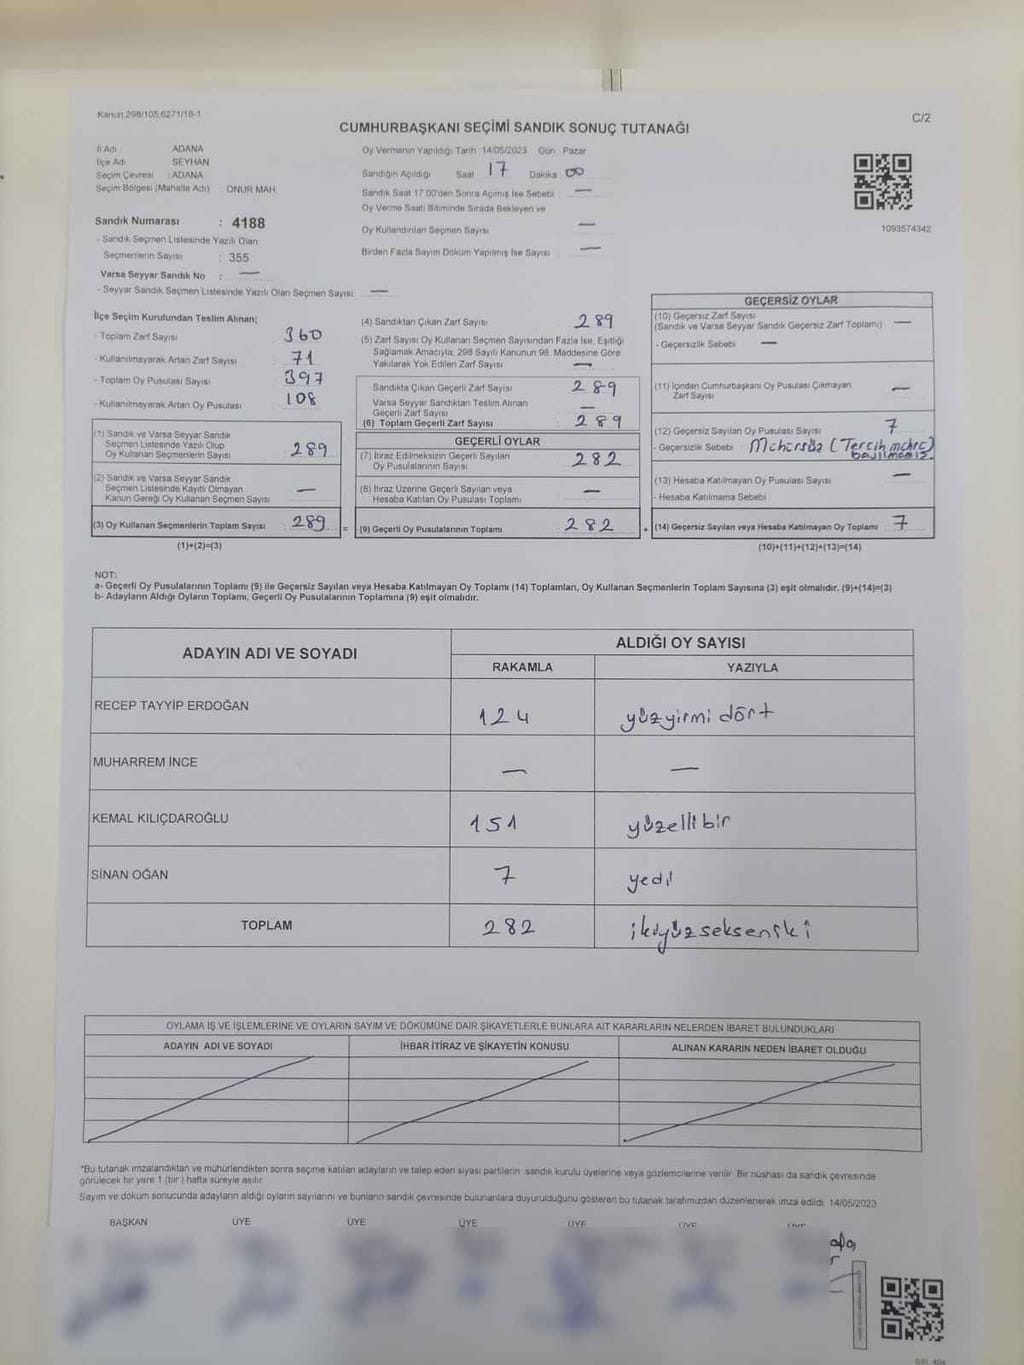 Kanun 298/105,6271/16-1
C/2
CUMHURBAŞKANI SEÇİMİ SANDIK SONUÇ TUTANAĞI
İl Adı : ADANA
İlçe Adı : SEYHAN
Seçim Çevresi : ADANA
Seçim Bölgesi (Mahalle Adı) : ONUR MAH.
Oy Vermenin Yapıldığı Tarih : 14/05/2023 Gün : Pazar
Sandığın Açıldığı Saat 17 Dakika 00
Sandık Saat 17 00'den Sonra Açılmış İse Sebebi —
Oy Verme Saati Bitiminde Sırada Bekleyen ve
Oy Kullandırılan Seçmen Sayısı —
Birden Fazla Sayım Döküm Yapılmış İse Sayısı —
1093574342
Sandık Numarası : 4188
- Sandık Seçmen Listesinde Yazılı Olan
Seçmenlerin Sayısı : 355
Varsa Seyyar Sandık No : —
- Seyyar Sandık Seçmen Listesinde Yazılı Olan Seçmen Sayısı: —
İlçe Seçim Kurulundan Teslim Alınan;
- Toplam Zarf Sayısı 360
- Kullanılmayarak Artan Zarf Sayısı 71
- Toplam Oy Pusulası Sayısı 397
- Kullanılmayarak Artan Oy Pusulası 108
(1) Sandık ve Varsa Seyyar Sandık
Seçmen Listesinde Yazılı Olup
Oy Kullanan Seçmenlerin Sayısı 289
(2) Sandık ve Varsa Seyyar Sandık
Seçmen Listesinde Kayıtlı Olmayan
Kanun Gereği Oy Kullanan Seçmen Sayısı —
(3) Oy Kullanan Seçmenlerin Toplam Sayısı 289 =
(1)+(2)=(3)
(4) Sandıktan Çıkan Zarf Sayısı 289
(5) Zarf Sayısı Oy Kullanan Seçmen Sayısından Fazla İse, Eşitliği
Sağlamak Amacıyla, 298 Sayılı Kanunun 98. Maddesine Göre
Yakılarak Yok Edilen Zarf Sayısı —
Sandıkta Çıkan Geçerli Zarf Sayısı 289
Varsa Seyyar Sandıktan Teslim Alınan
Geçerli Zarf Sayısı —
(6) Toplam Geçerli Zarf Sayısı 289
GEÇERLİ OYLAR
(7) İtiraz Edilmeksizin Geçerli Sayılan
Oy Pusulalarının Sayısı 282
(8) İtiraz Üzerine Geçerli Sayılan veya
Hesaba Katılan Oy Pusulası Toplamı —
(9) Geçerli Oy Pusulalarının Toplamı 282 +
GEÇERSİZ OYLAR
(10) Geçersiz Zarf Sayısı
(Sandık ve Varsa Seyyar Sandık Geçersiz Zarf Toplamı) —
- Geçersizlik Sebebi —
(11) İçinden Cumhurbaşkanı Oy Pusulası Çıkmayan
Zarf Sayısı —
(12) Geçersiz Sayılan Oy Pusulası Sayısı 7
- Geçersizlik Sebebi Mühürsüz (Tercih mührü)
basılmamış.
(13) Hesaba Katılmayan Oy Pusulası Sayısı —
- Hesaba Katılmama Sebebi
(14) Geçersiz Sayılan veya Hesaba Katılmayan Oy Toplamı 7
(10)+(11)+(12)+(13)=(14)
NOT:
a- Geçerli Oy Pusulalarının Toplamı (9) ile Geçersiz Sayılan veya Hesaba Katılmayan Oy Toplamı (14) Toplamları, Oy Kullanan Seçmenlerin Toplam Sayısına (3) eşit olmalıdır. (9)+(14)=(3)
b- Adayların Aldığı Oyların Toplamı, Geçerli Oy Pusulalarının Toplamına (9) eşit olmalıdır.
ADAYIN ADI VE SOYADI
ALDIĞI OY SAYISI
RAKAMLA YAZIYLA
RECEP TAYYİP ERDOĞAN 124 yüzyirmi dört
MUHARREM İNCE — —
KEMAL KILIÇDAROĞLU 151 yüzelli bir
SİNAN OĞAN 7 yedi
TOPLAM 282 ikiyüz sekseniki
OYLAMA İŞ VE İŞLEMLERİNE VE OYLARIN SAYIM VE DÖKÜMÜNE DAİR ŞİKAYETLERLE BUNLARA AİT KARARLARIN NELERDEN İBARET BULUNDUKLARI
ADAYIN ADI VE SOYADI İHBAR İTİRAZ VE ŞİKAYETİN KONUSU ALINAN KARARIN NEDEN İBARET OLDUĞU
*Bu tutanak imzalandıktan ve mühürlendikten sonra seçime katılan adayların ve talep eden siyasi partilerin sandık kurulu üyelerine veya gözlemcilerine verilir. Bir nüshası da sandık çevresinde
görülecek bir yere 1 (bir ) hafta süreyle asılır.
Sayım ve döküm sonucunda adayların aldığı oyların sayılarını ve bunların sandık çevresinde bulunanlara duyurulduğunu gösteren bu tutanak tarafımızdan düzenlenerek imza edildi. 14/05/2023
BAŞKAN ÜYE ÜYE ÜYE ÜYE ÜYE ÜYE